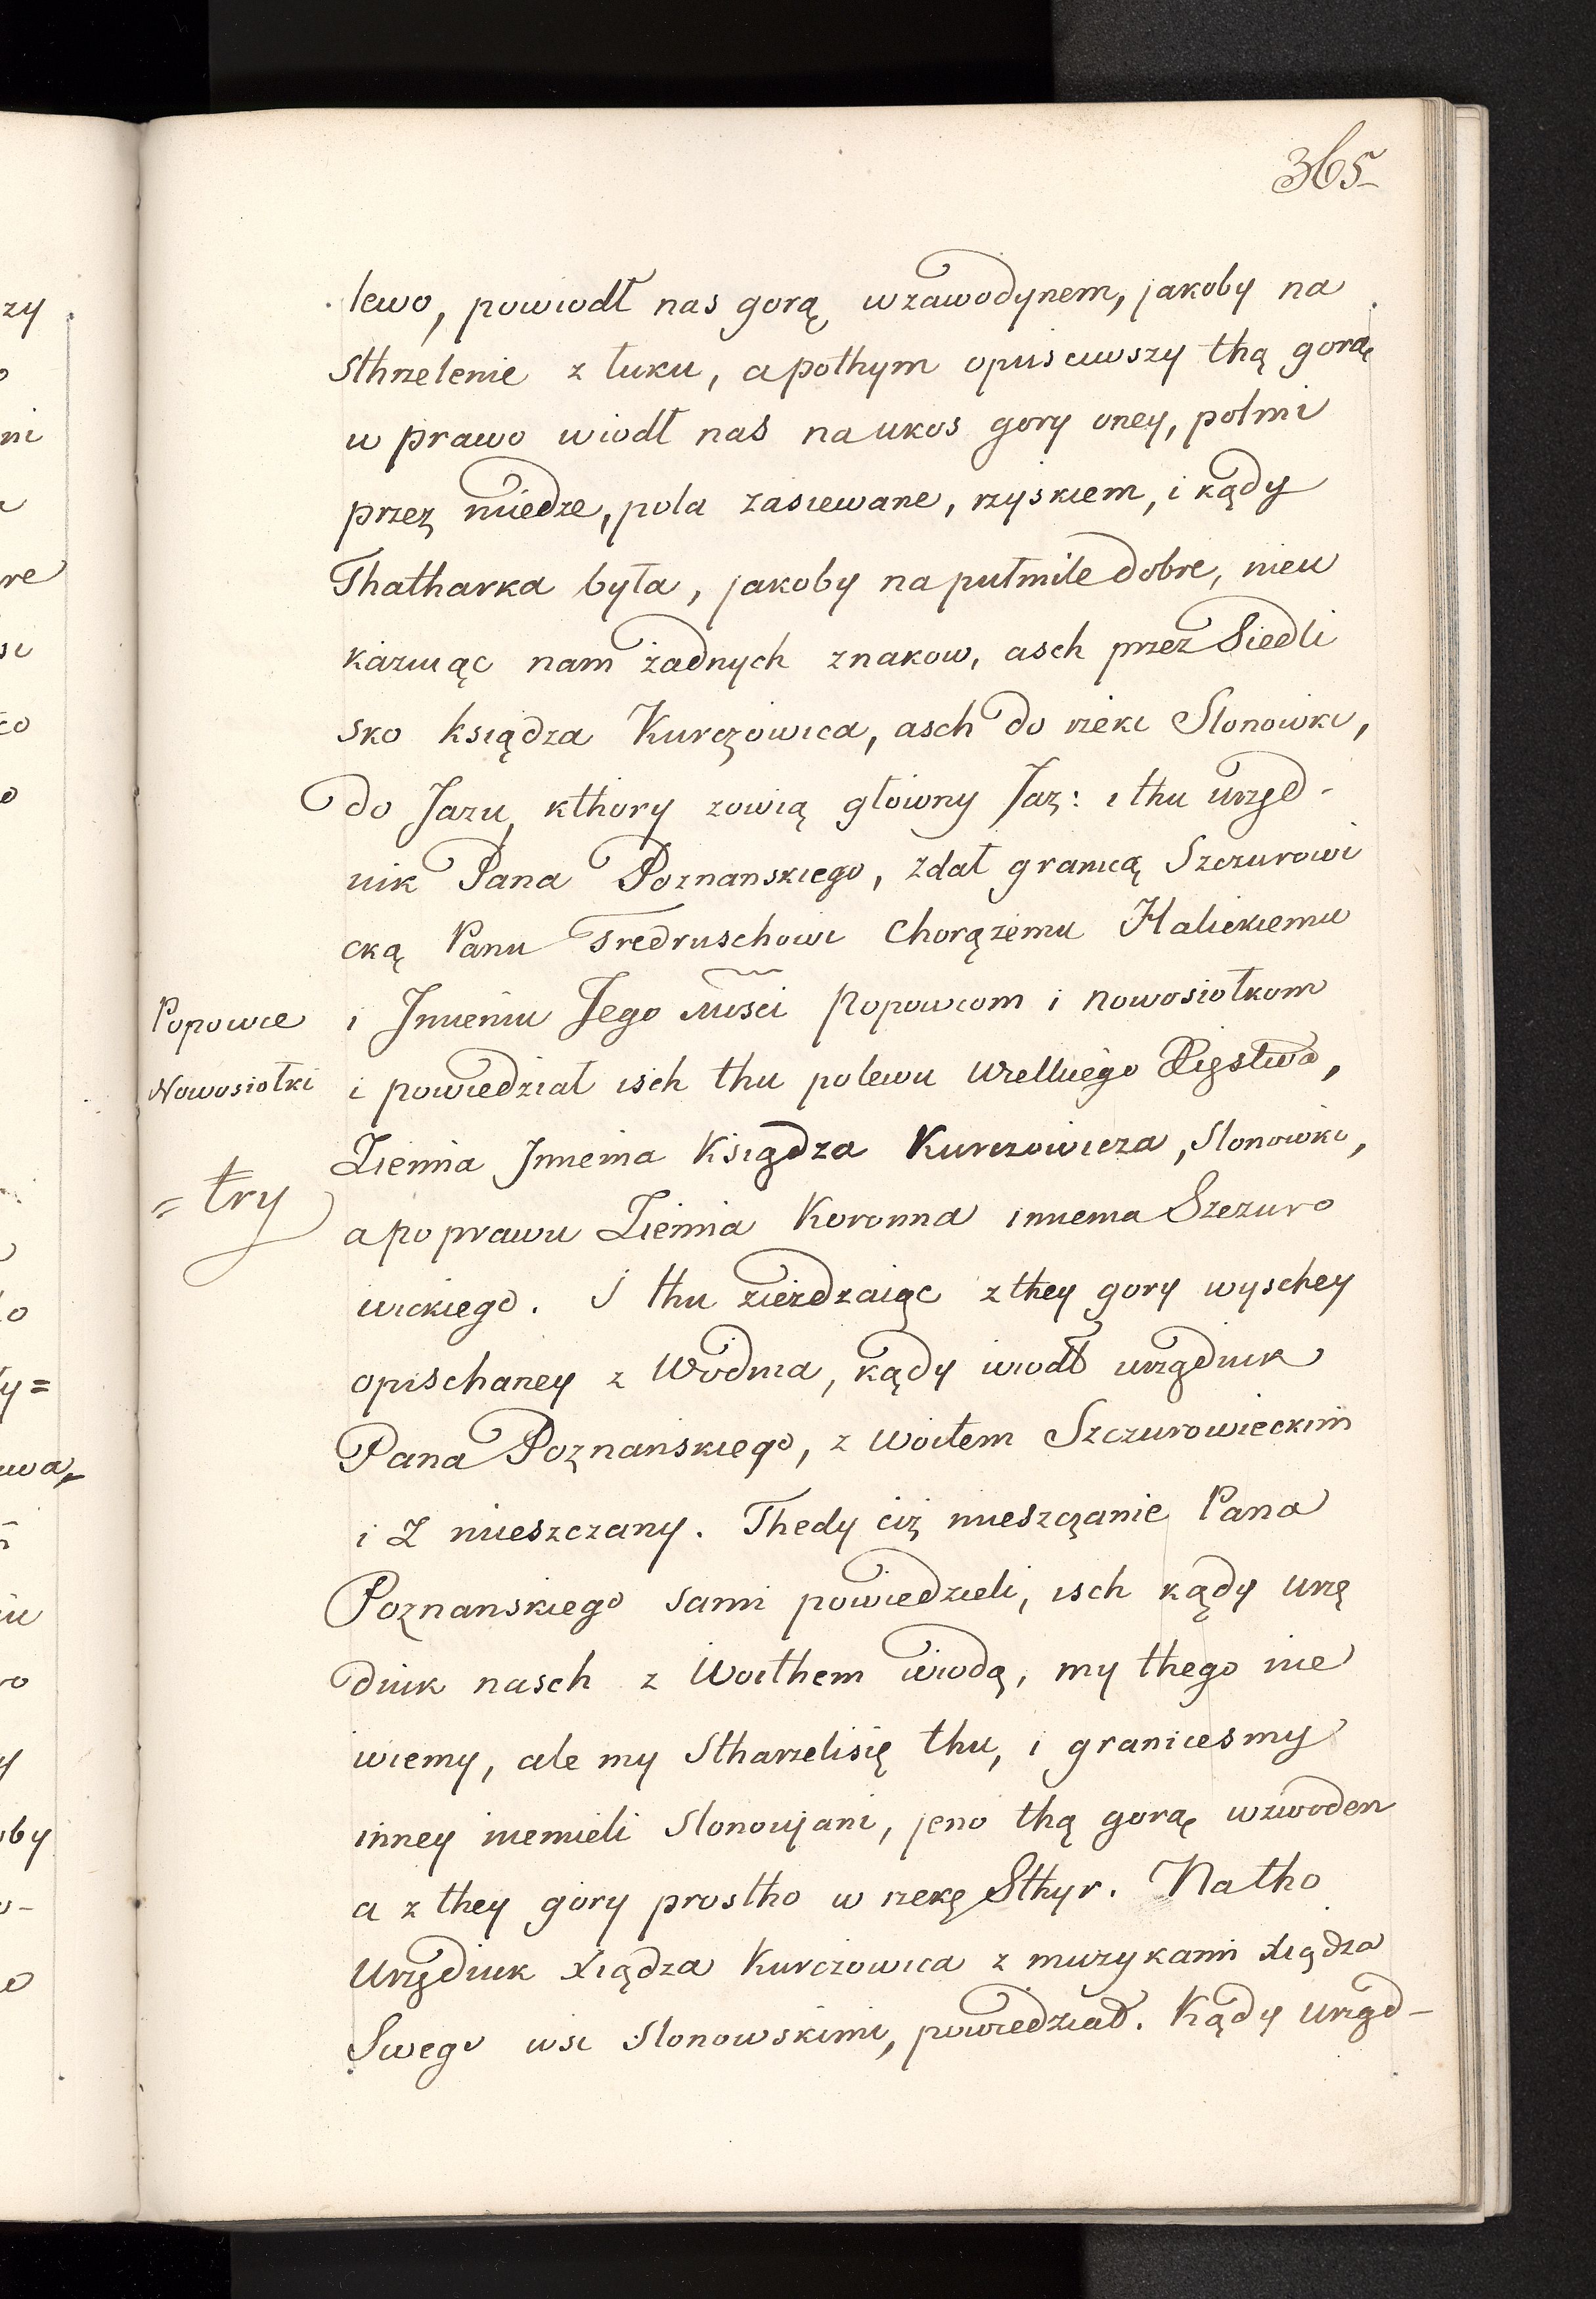 365
lewo, powiodł nas gorą wzawodynem, jakoby na
sthrzelenie z łuku, apothym opusciwszy thą gorę
w prawo wiodł nas na ukos gory oney, polmi
przez miedze, pola zasiewane, rzyskiem, i kądy
Thatharka była, jakoby na pułmile dobre, nieu
kazuiąc nam żadnych znakow, asch przez Siedli
sko księdza Kurczowica, asch do rzeki Slonowki,
do Jazu, kthory zowią głowny Jaz: i thu urzęd-
nik Pana Poznanskiego, zdał granicą Szczurowi
cką Panu Fredruschowi Chorążemu Halickiemu
Popowce
i Imieniu Jego Mści Popowcom i nowosiołkom
Nowosiołki
i powiedział isch thu polewu Wielkiego Xięstwa,
Ziemia Jmienia Księdza Kurczowicza, Slonowki,
= try
apoprawu Ziemia Koronna imienia Szczuro
wickiego. I thu zieżdzaiąc z they gory wyschey
opischaney z Wodnia, kądy wiodł urzędnik
Pana Poznanskiego, z Woitem Szczurowieckim
i Z mieszczany. Thedy ciż mieszczanie Pana
Poznanskiego sami powiedzieli, isch kądy urzę
dnik nasch z Woithem wiodą, my thego nie
wiemy, ale my Stharzelisię thu, i granicesmy
inney niemieli Slonowjani, jeno thą gorę wzwoden
a z they gory prostho w rzekę Sthyr. Na tho
Urzędnik Xiędza Kurczowica z muzykami Xiędza
Swego wsi Slonowskimi, powiedział. Kądy urzęd-